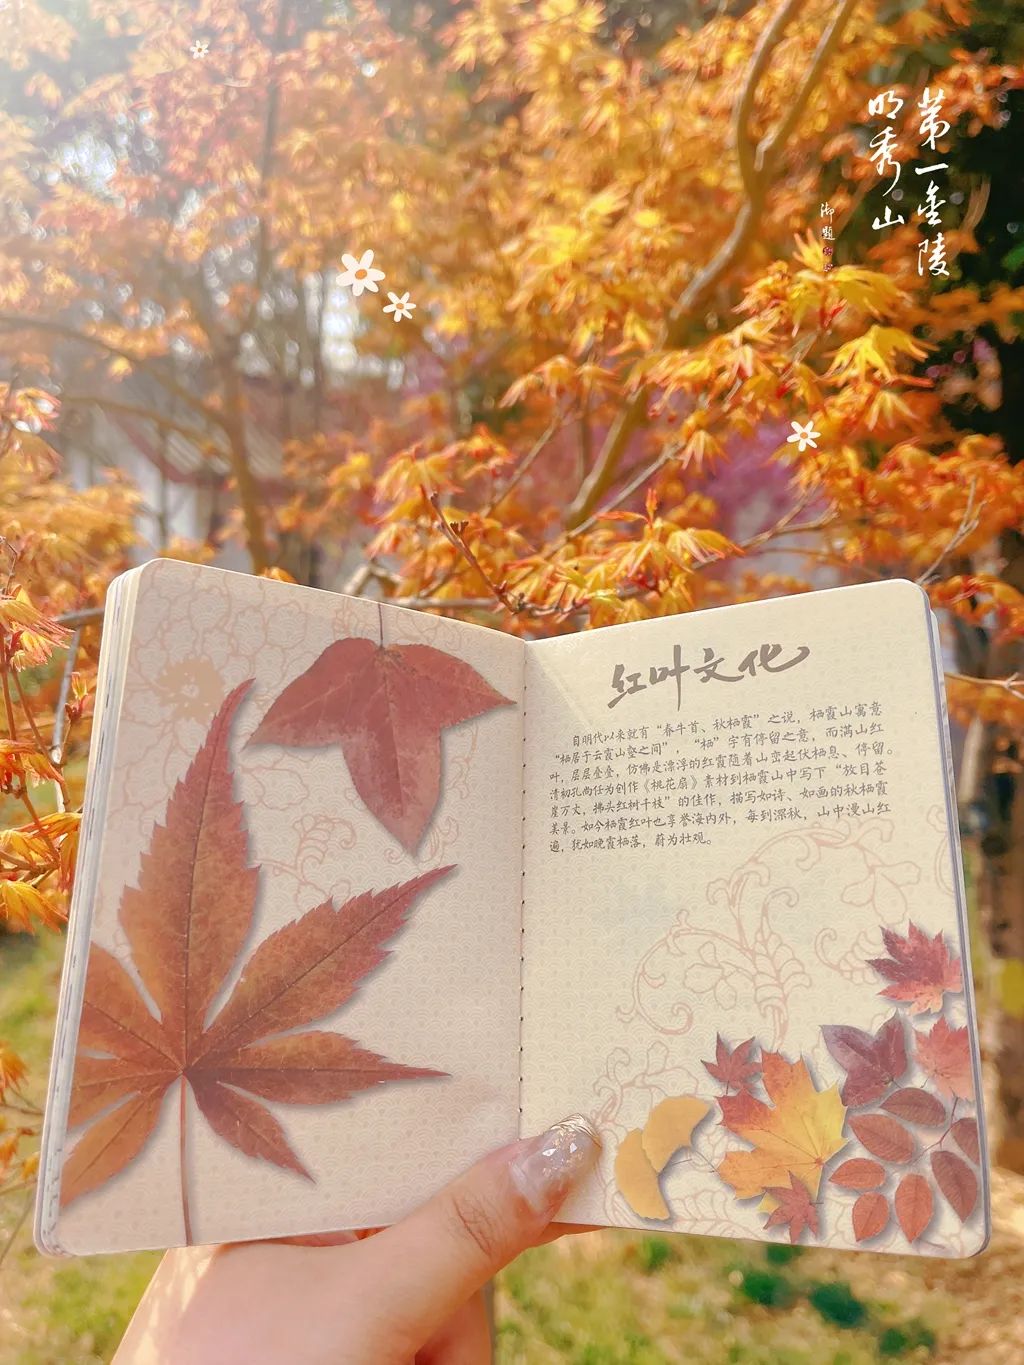 第一金陵
明秀山
御题
红叶文化
自明代以来就有“春牛首、秋栖霞”之说，栖霞山寓意
“栖居于云霞山壑之间”，“栖”字有停留之意，而满山红
叶，层层叠叠，仿佛是漂浮的红霞随着山峦起伏栖息、停留。
清初孔尚任为创作《桃花扇》素材到栖霞山中写下“放目苍
崖万丈，拂头红树千枝”的佳作，描写如诗、如画的秋栖霞
美景。如今栖霞红叶也享誉海内外，每到深秋，山中漫山红
遍，犹如晚霞栖落，蔚为壮观。